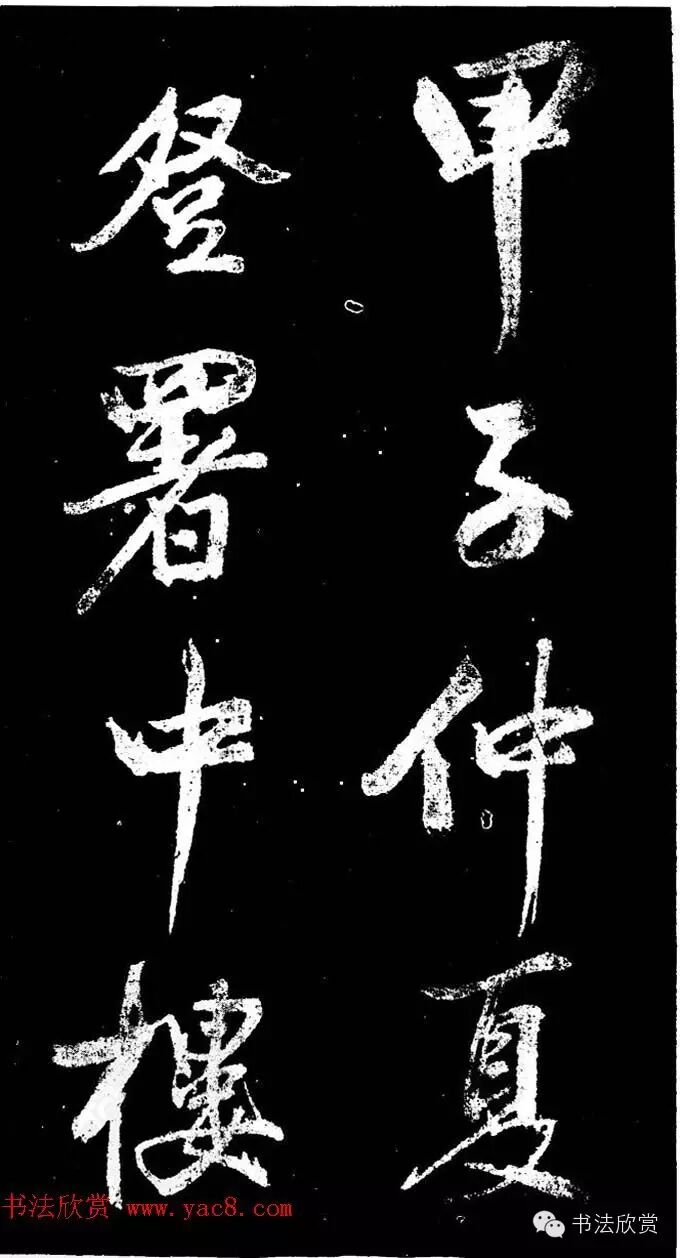 甲子仲夏
登署中樓
书法欣赏 www.yac8.com
书法欣赏